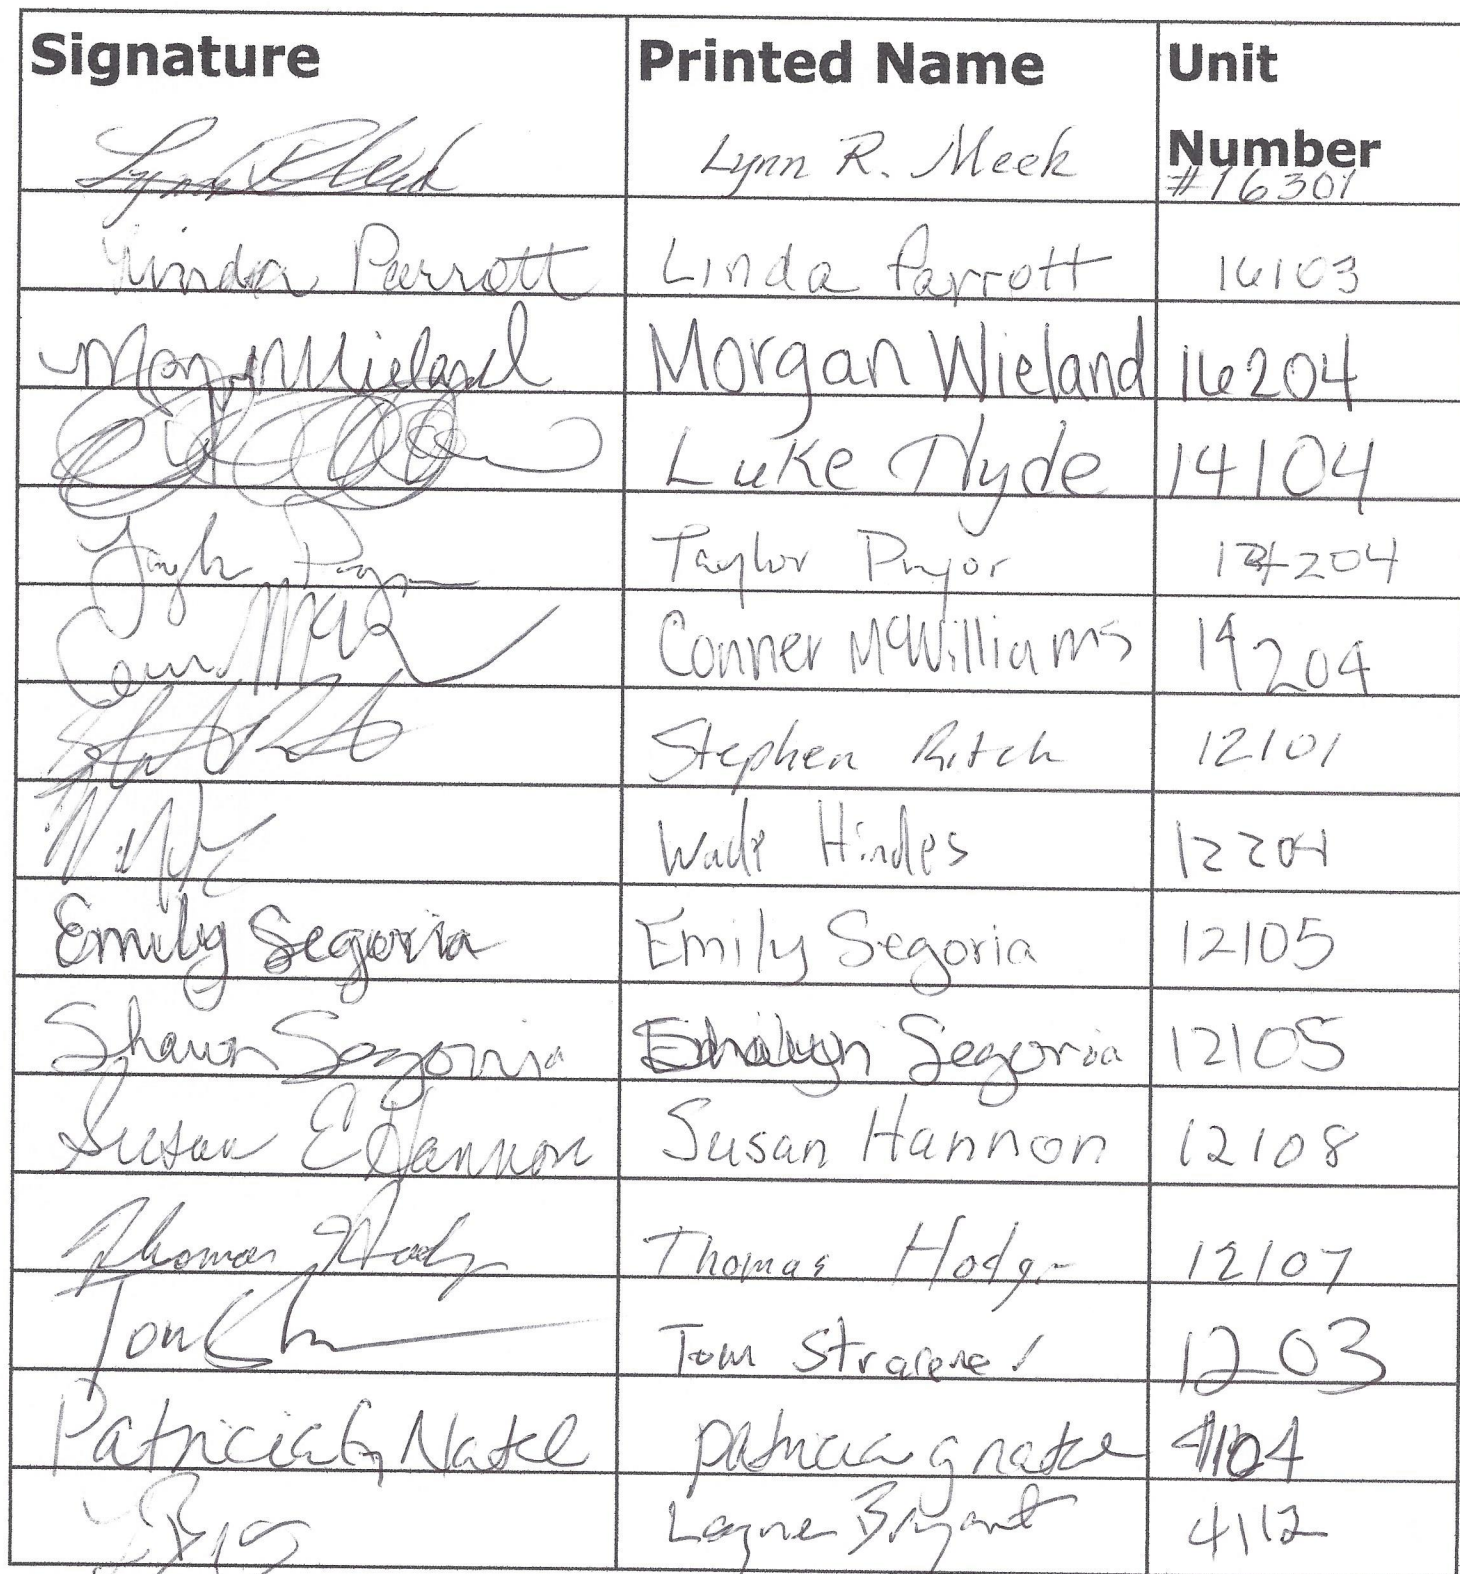 Signature Printed Name Unit
Number
Lynn R Meek Lynn R. Meek #16301
Linda Parrott Linda Parrott 16103
Morgan Wieland Morgan Wieland 16204
Luke Hyde 14104
Taylor Pryor Taylor Pryor 14204
Conner McWilliams 14204
Stephen Ritch 12101
Wade Hindes 12204
Emily Segoria Emily Segoria 12105
Shawn Segoria Segoria 12105
Susan E Hannon Susan Hannon 12108
Thomas Thomas 12107
Tom Tom 1203
Patricia G Natel patricia g natel 4104
Layne Bryant 4112